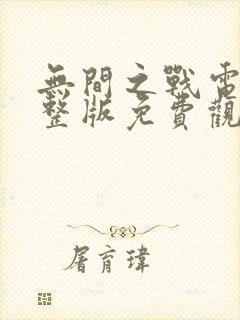 無間之戰電
整版免費觀
屠育瑋